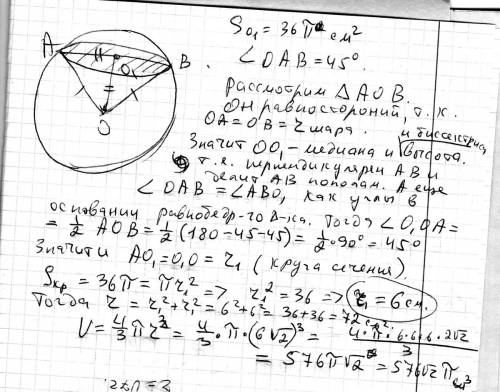 S₀₁ = 36π см²
∠OAB = 45°.
Рассмотрим △AOB.
Он равносторонний, т.к.
OA = OB = r шара.
и биссектриса
Значит OO₁ - медиана и высота.
т.е. перпендикулярен AB и
делит AB пополам. А еще
∠OAB = ∠ABO, как углы в
основании равнобедр-го Δ-ка. Тогда ∠O₁OA =
= 1/2 AOB = 1/2 (180 - 45 - 45) = 1/2 · 90° = 45°
Значит AO₁ = O₁O = r₁ (круга сечения).
Sкр = 36π = πr₁² => r₁² = 36 => r₁ = 6 см.
Тогда r = r₁² + r₁² = 6² + 6² = 36 + 36 = 72 см².
V = 4/3 πr³ = 4/3 · π · (6√2)³ = 4·π·6·6·6·2√2 / 3
= 576π√2 = 576√2 π см³
A
H
O₁
B
O